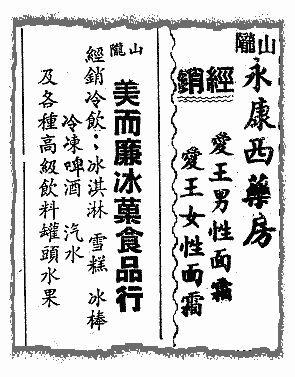 山隴
永康西藥房
經銷
愛王男性面霜
愛王女性面霜
山隴
美而廉冰菓食品行
經銷冷飲：冰淇淋 雪糕 冰棒
冷凍啤酒 汽水
及各種高級飲料罐頭水果